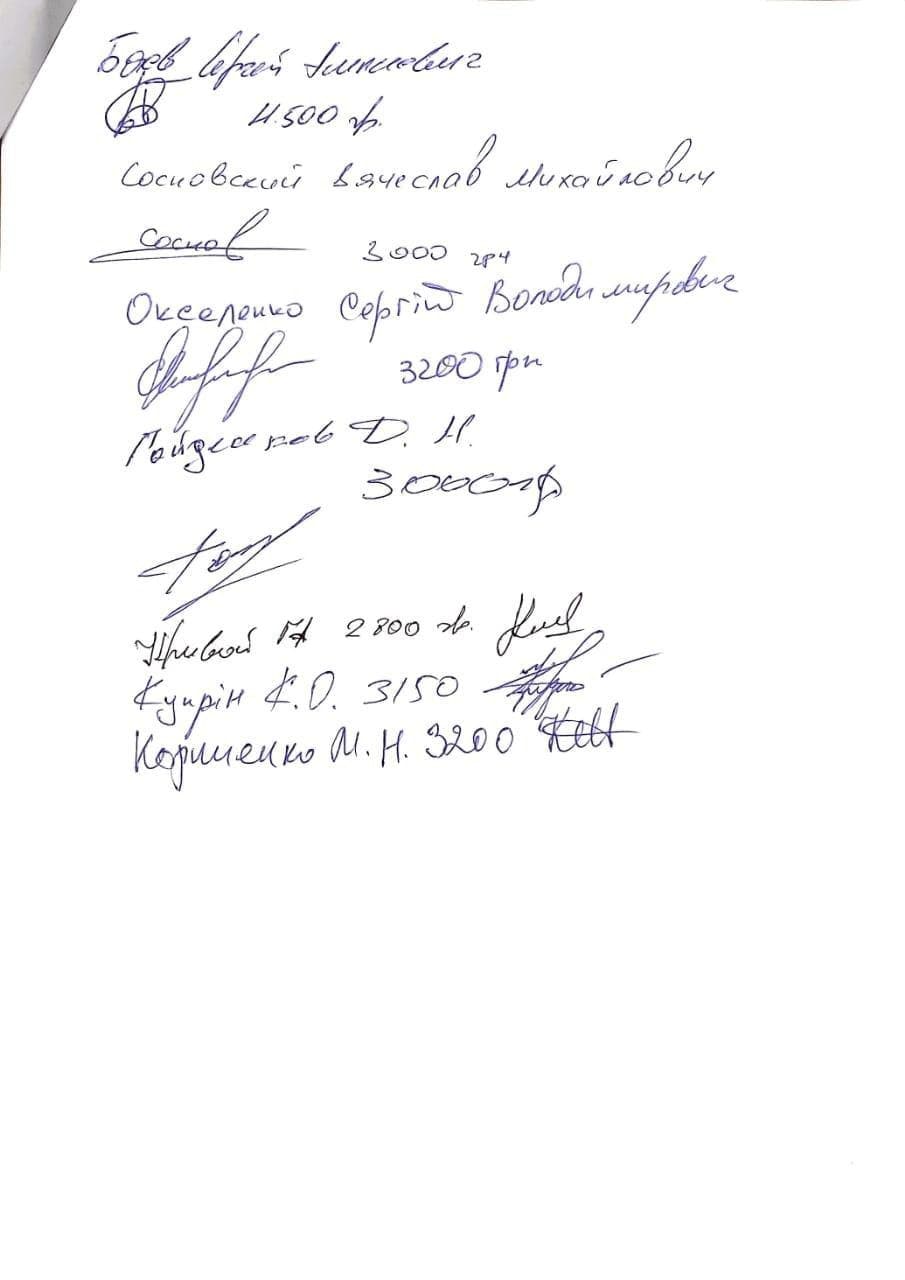 Боев Сергей
4.500 гр.
Сосновский Вячеслав Михайлович
Соснов
3000 грч
Окселенко Сергій Володимирович
3200 грн
Д. Н.
3000 гр
Кривой 2800 гр.
Купрін К.О. 3150
Корниенко М.Н. 3200